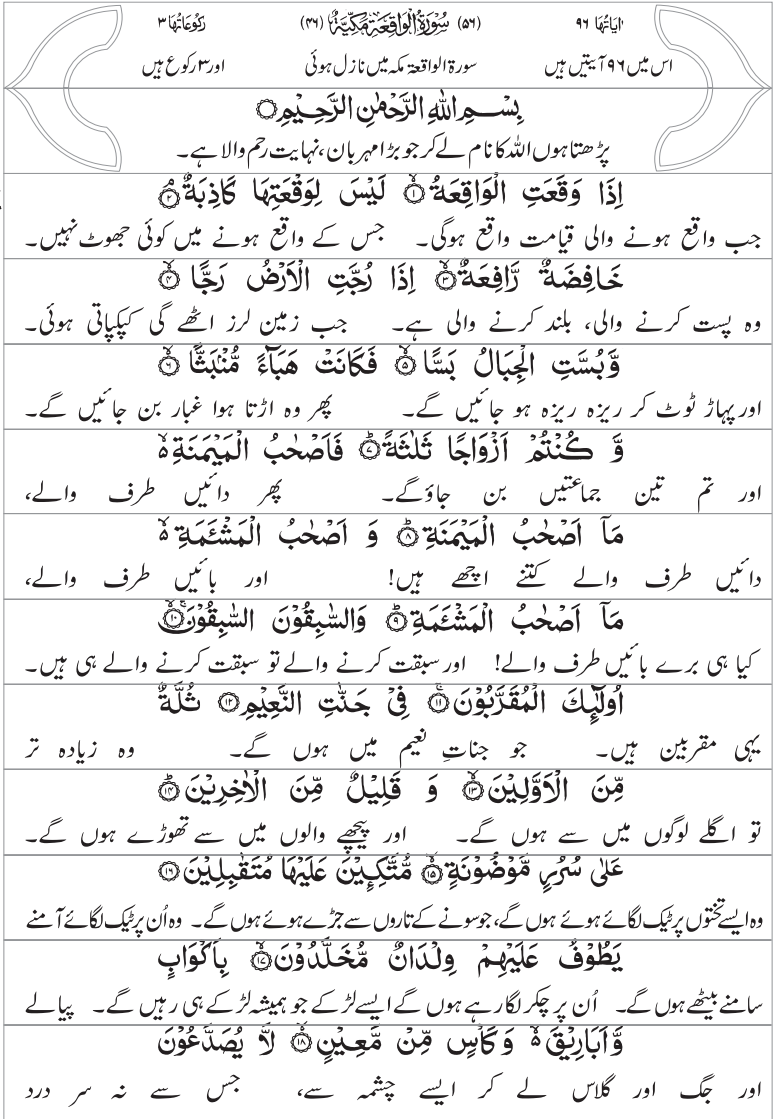 اٰیَاتُهَا ۹۶ (۵۶) سُوْرَةُ الْوَاقِعَةِ مَكِّيَّةٌ (۴۶) رُكُوْعَاتُهَا ۳
اس میں ۹۶ آیتیں ہیں سورۃ الواقعۃ مکہ میں نازل ہوئی اور ۳ رکوع ہیں
بِسْمِ اللّٰهِ الرَّحْمٰنِ الرَّحِيْمِ۝
پڑھتا ہوں اللہ کا نام لے کر جو بڑا مہربان، نہایت رحم والا ہے۔
اِذَا وَقَعَتِ الْوَاقِعَةُ ۙ‏﴿۱﴾ لَيْسَ لِوَقْعَتِهَا كَاذِبَةٌ ۘ‏﴿۲﴾
جب واقع ہونے والی قیامت واقع ہوگی۔ جس کے واقع ہونے میں کوئی جھوٹ نہیں۔
خَافِضَةٌ رَّافِعَةٌ ۙ‏﴿۳﴾ اِذَا رُجَّتِ الْاَرْضُ رَجًّا ۙ‏﴿۴﴾
وہ پست کرنے والی، بلند کرنے والی ہے۔ جب زمین لرز اٹھے گی کپکپاتی ہوئی۔
وَّبُسَّتِ الْجِبَالُ بَسًّا ۙ‏﴿۵﴾ فَكَانَتْ هَبَآءً مُّنْۢبَثًّا ۙ‏﴿۶﴾
اور پہاڑ ٹوٹ کر ریزہ ریزہ ہو جائیں گے۔ پھر وہ اڑتا ہوا غبار بن جائیں گے۔
وَّ كُنْتُمْ اَزْوَاجًا ثَلٰثَةً ؕ‏﴿۷﴾ فَاَصْحٰبُ الْمَيْمَنَةِ ۙ۬
اور تم تین جماعتیں بن جاؤگے۔ پھر دائیں طرف والے،
مَاۤ اَصْحٰبُ الْمَيْمَنَةِ ؕ‏﴿۸﴾ وَ اَصْحٰبُ الْمَشْـَٔمَةِ ۙ۬
دائیں طرف والے کتنے اچھے ہیں! اور بائیں طرف والے،
مَاۤ اَصْحٰبُ الْمَشْـَٔمَةِ ؕ‏﴿۹﴾ وَالسّٰبِقُوْنَ السّٰبِقُوْنَ ۚۙ‏﴿۱۰﴾
کیا ہی برے بائیں طرف والے! اور سبقت کرنے والے تو سبقت کرنے والے ہی ہیں۔
اُولٰٓئِكَ الْمُقَرَّبُوْنَ ۚ‏﴿۱۱﴾ فِيْ جَنّٰتِ النَّعِيْمِ﴿۱۲﴾ ثُلَّةٌ
یہی مقربین ہیں۔ جو جناتِ نعیم میں ہوں گے۔ وہ زیادہ تر
مِّنَ الْاَوَّلِيْنَ ۙ‏﴿۱۳﴾ وَ قَلِيْلٌ مِّنَ الْاٰخِرِيْنَ ؕ‏﴿۱۴﴾
تو اگلے لوگوں میں سے ہوں گے۔ اور پیچھے والوں میں سے تھوڑے ہوں گے۔
عَلٰى سُرُرٍ مَّوْضُوْنَةٍ ۙ‏﴿۱۵﴾ مُّتَّكِـِٕيْنَ عَلَيْهَا مُتَقٰبِلِيْنَ﴿۱۶﴾
وہ ایسے تختوں پر ٹیک لگائے ہوئے ہوں گے، جو سونے کے تاروں سے جڑے ہوئے ہوں گے۔ وہ اُن پر ٹیک لگائے آمنے
يَطُوْفُ عَلَيْهِمْ وِلْدَانٌ مُّخَلَّدُوْنَ ۙ‏﴿۱۷﴾ بِاَكْوَابٍ
سامنے بیٹھے ہوں گے۔ اُن پر چکر لگا رہے ہوں گے ایسے لڑکے جو ہمیشہ لڑکے ہی رہیں گے۔ پیالے
وَّاَبَارِيْقَ ۙ۬ وَكَاْسٍ مِّنْ مَّعِيْنٍ ۙ‏﴿۱۸﴾ لَّا يُصَدَّعُوْنَ
اور جگ اور گلاس لے کر ایسے چشمہ سے، جس سے نہ سر درد